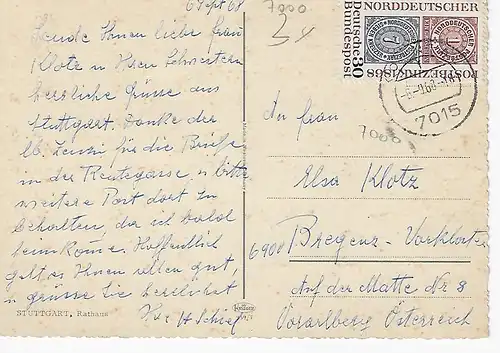 6 Sept 68
Sende Ihnen liebe Frau
Klotz u Ihren Schwestern
herzliche Grüsse aus
Stuttgart. Danke der
lb. für die Briefe
in der u bitte
weitere Post dort zu
behalten, da ich bald
heimkome. Hoffentlich
geht es Ihnen allen gut
u grüsse Sie herzlichst
Ihr H
STUTTGART, Rathaus
7000
34
NORDDEUTSCHER
POSTBEZIRK 1868
Deutsche
Bundespost
30
7015
7000
An Frau
Elsa Klotz
6900 Bregenz-Vorkloster
Auf der Matte Nr 8
Vorarlberg Österreich